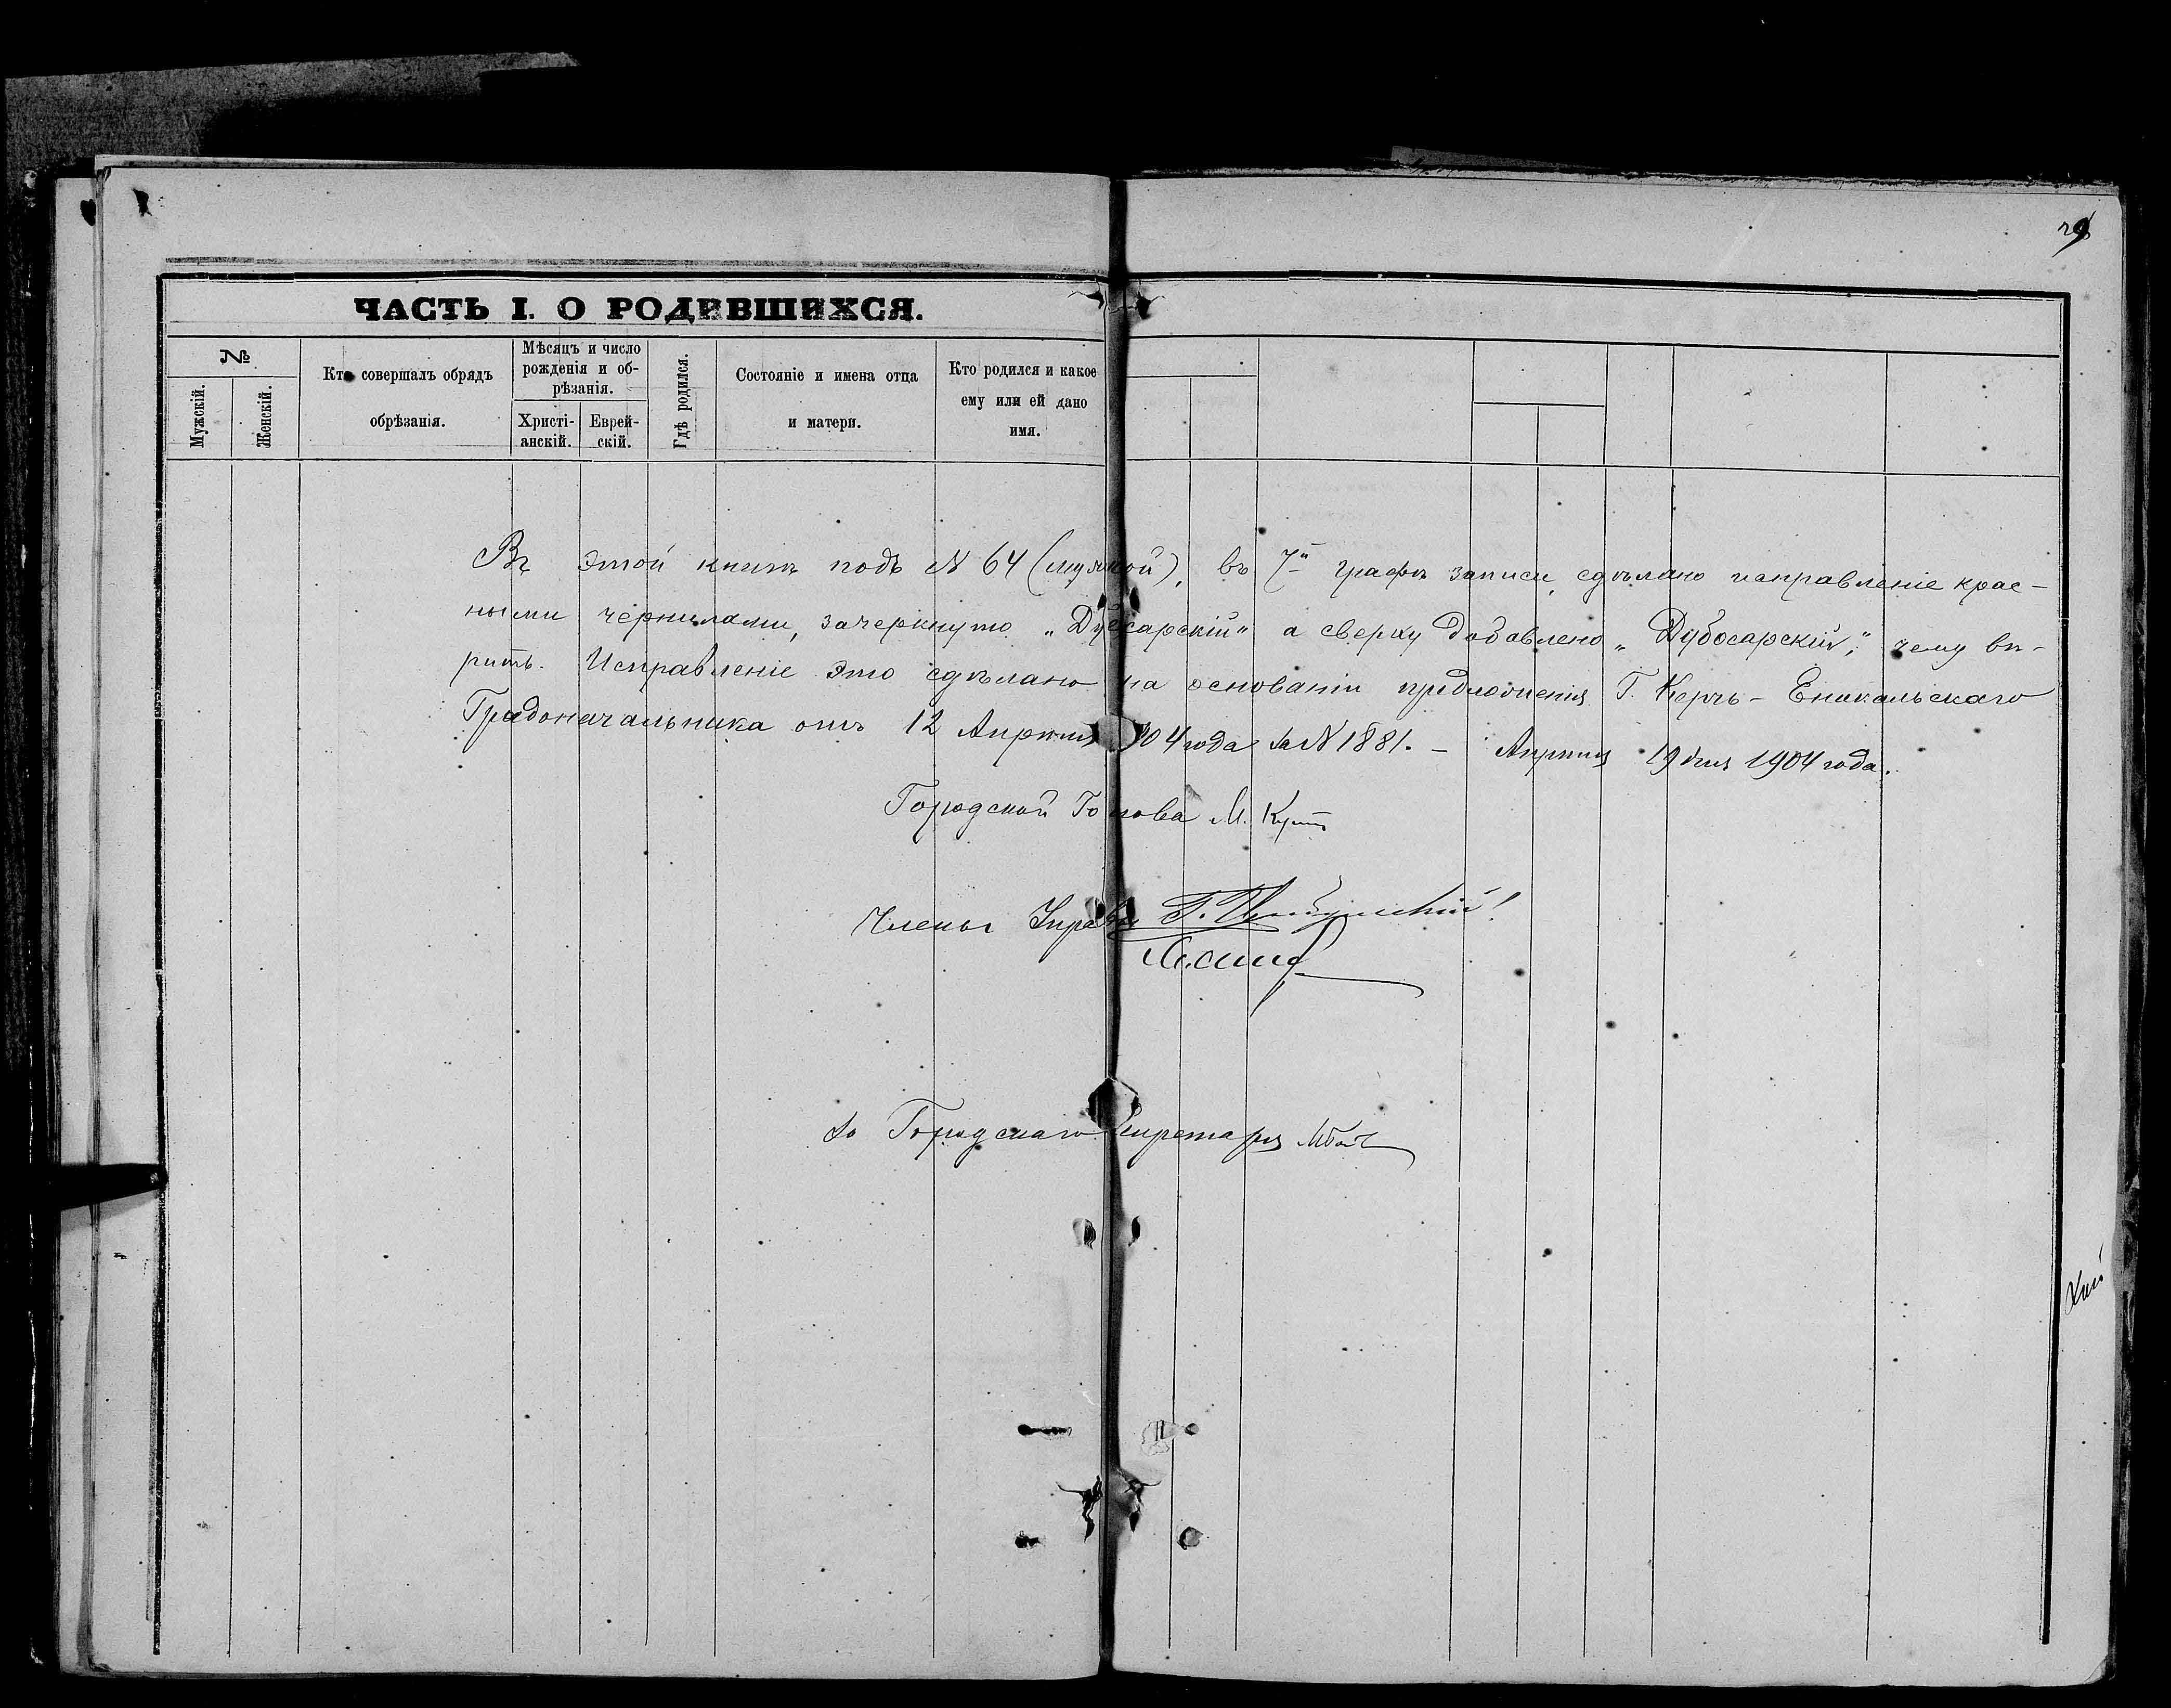 29
ЧАСТЬ I. О РОДИВШИХСЯ.
№
Мужскій.
Женскій.
Кто совершалъ обрядъ
обрѣзанія.
Мѣсяцъ и число
рожденія и об-
рѣзанія.
Христі-
анскій.
Еврей-
скій.
Гдѣ родился.
Состояніе и имена отца
и матери.
Кто родился и какое
ему или ей дано
имя.
Въ этой книгѣ подъ № 64 (мужской), въ 7й графѣ записи, сдѣлано исправленіе крас-
ными чернилами, зачеркнуто „Дубсарскій" а сверху добавлено „Дубосарскій," чему вѣ-
рить. Исправленіе это сдѣлано на основаніи предложенія Г. Керчь-Еникальскаго
Градоначальника отъ 12 Апрѣля 904 года за № 1881. - Апрѣля 19 дня 1904 года.
Городской Голова М.
Члены Управы Г.
За Городского Секретаря